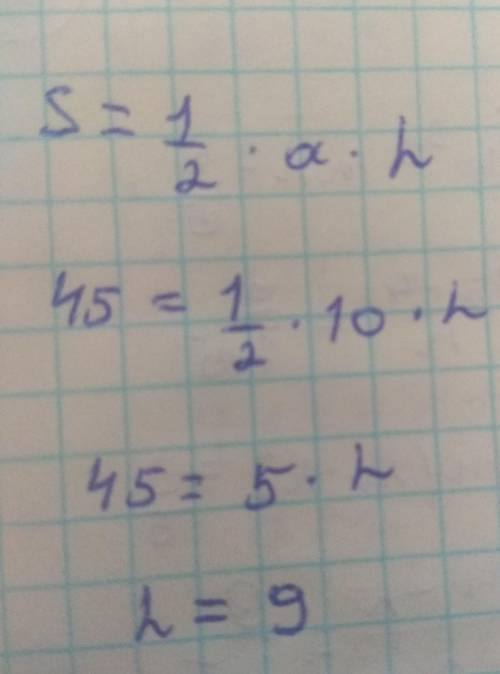 S = 1/2 · a · h
45 = 1/2 · 10 · h
45 = 5 · h
h = 9